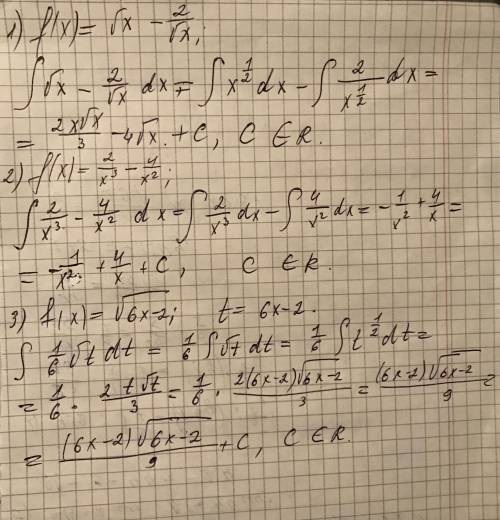 1) f(x) = √x − 2/√x;
∫ √x − 2/√x dx = ∫ x^(1/2) dx − ∫ 2/x^(1/2) dx =
= 2x√x/3 − 4√x + C, C ∈ R.
2) f(x) = 2/x³ − 4/x²;
∫ 2/x³ − 4/x² dx = ∫ 2/x³ dx − ∫ 4/x² dx = −1/x² + 4/x =
= −1/x² + 4/x + C, C ∈ R.
3) f(x) = √(6x−2); t = 6x−2.
∫ 1/6 √t dt = 1/6 ∫ √t dt = 1/6 ∫ t^(1/2) dt =
= 1/6 · 2t√t/3 = 1/6 · 2(6x−2)√(6x−2)/3 = (6x−2)√(6x−2)/9 =
= (6x−2)√(6x−2)/9 + C, C ∈ R.